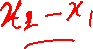 x₂ - x₁